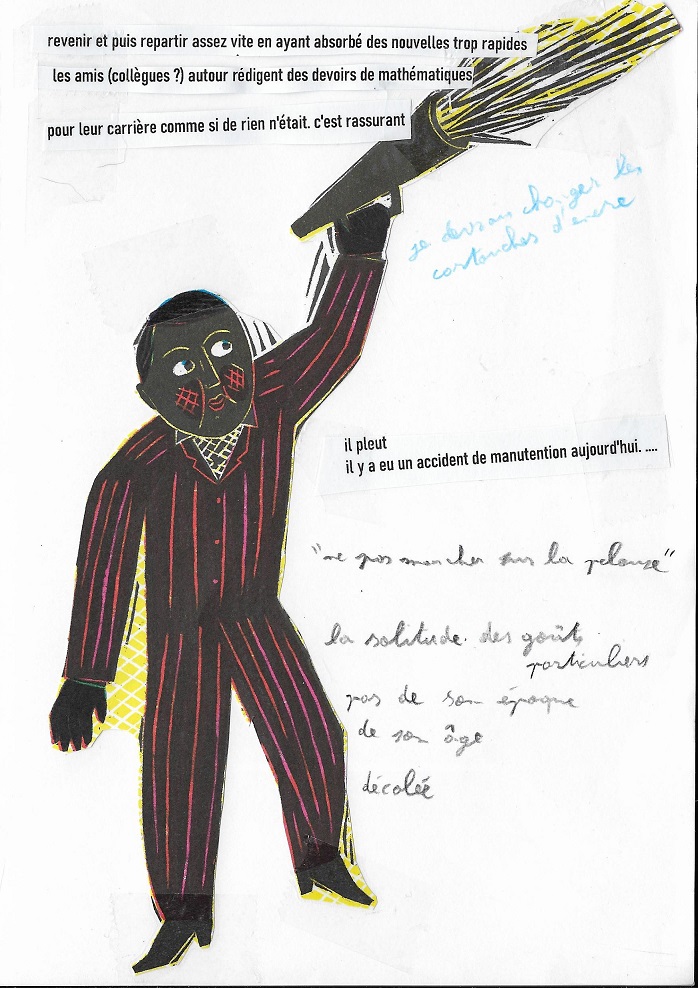 revenir et puis repartir assez vite en ayant absorbé des nouvelles trop rapides
les amis (collègues ?) autour rédigent des devoirs de mathématiques
pour leur carrière comme si de rien n'était. c'est rassurant
je devrais changer les
cartouches d'encre
il pleut
il y a eu un accident de manutention aujourd'hui. ....
"ne pas marcher sur la pelouse"
la solitude des goûts
particuliers
pas de son époque
de son âge
décolée